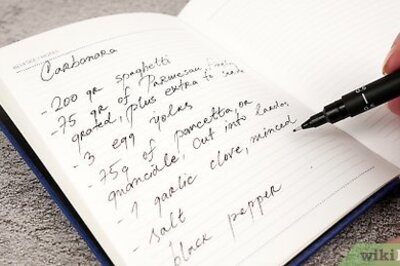 Carbonara
- 200 gr spaghetti
- 75 gr of Parmesan, finely
grated, plus extra to serve
- 3 egg yolks
- 75g of pancetta, or
guanciale, cut into lardos
- 1 garlic clove, minced
- salt
black pepper
0.5
wiki